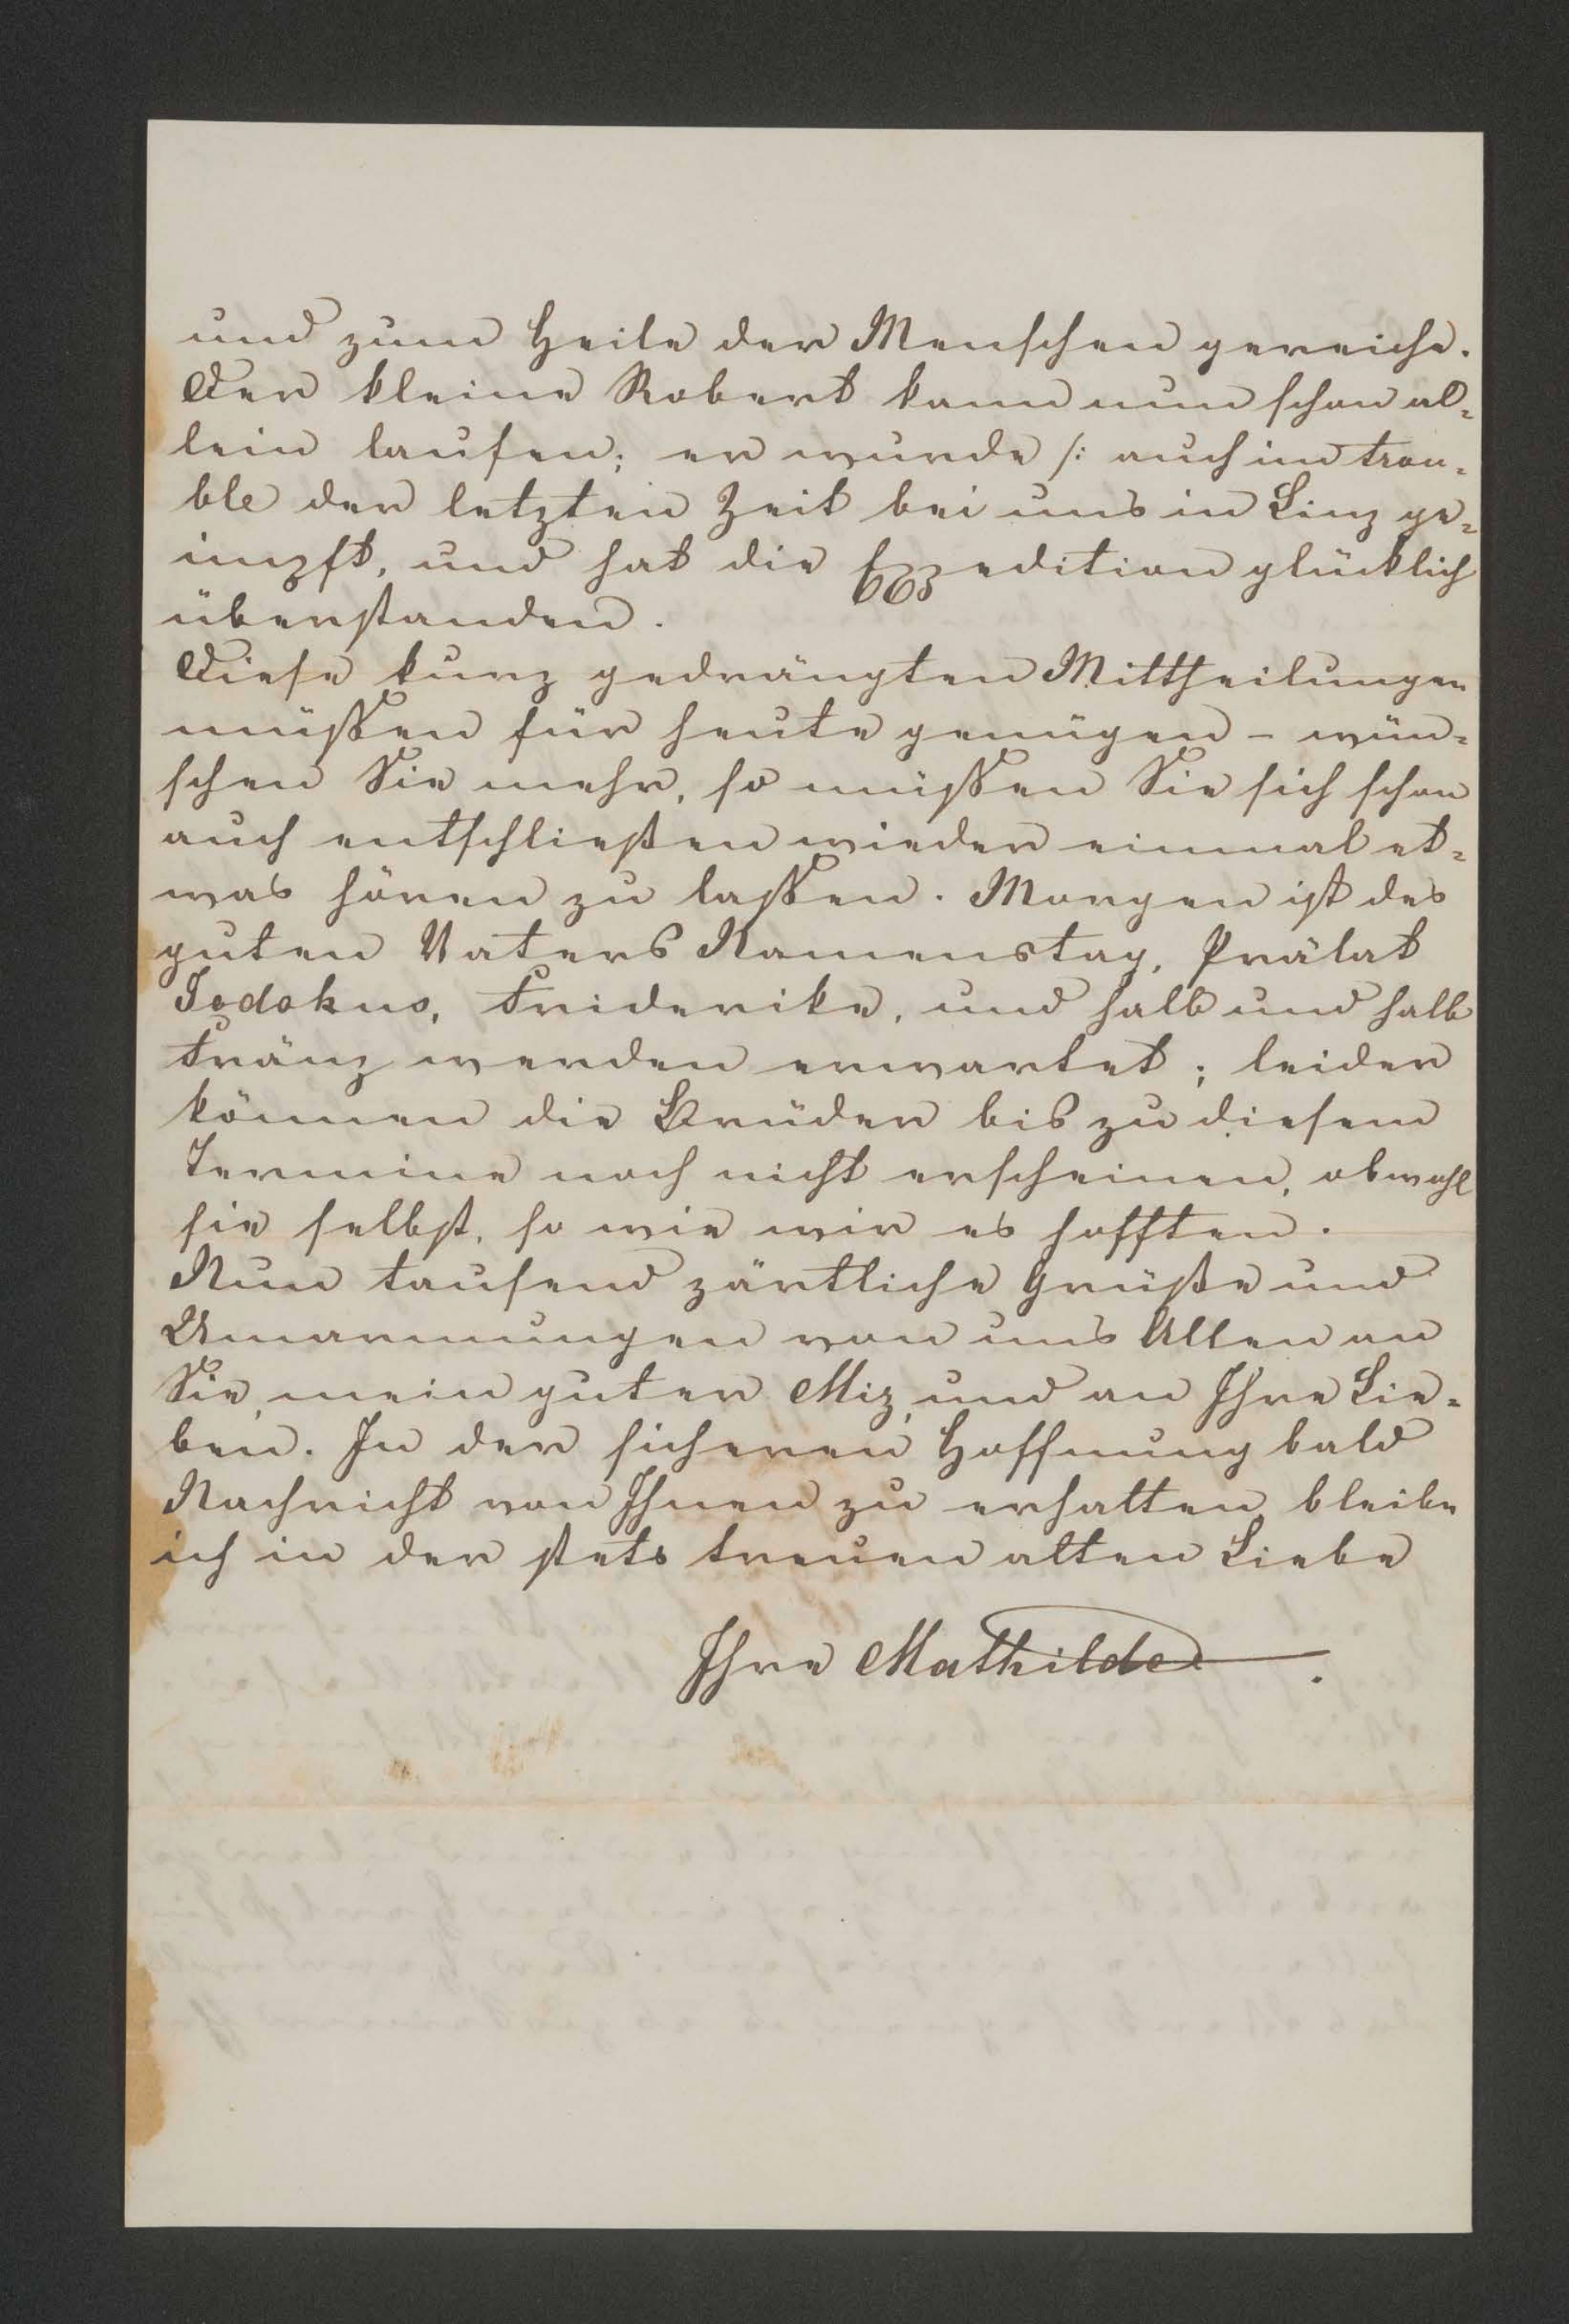 und zum Heile der Menschen gereiche.
Der kleine Robert kann nun schon al¬
lein laufen; er wurde /: auch im trou¬
ble der letzten Zeit bei uns in Linz ge¬
impft, und hat die Expedition glücklich
überstanden.
Diese kurz gedrängten Mittheilungen
müssen für heute genügen – wün¬
schen Sie mehr, so müssen Sie sich schon
auch entschließen wieder einmal et¬
was hören zu lassen. Morgen ist des
guten Vaters Namenstag, Prälat
Jodokus, Friderike, und halb und halb
Fränz werden erwartet; leider
können die Brüder bis zu diesem
Termine noch nicht erscheinen, obwohl
sie selbst, so wie wir es hofften.
Nun tausend zärtliche Grüße und
Umarmungen von uns Allen an
Sie, mein guter Miz, und an Ihre Lie¬
ben. In der sicheren Hoffnung bald
Nachricht von Ihnen zu erhalten, bleibe
ich in der stets treuen alten Liebe
Ihre Mathilde.